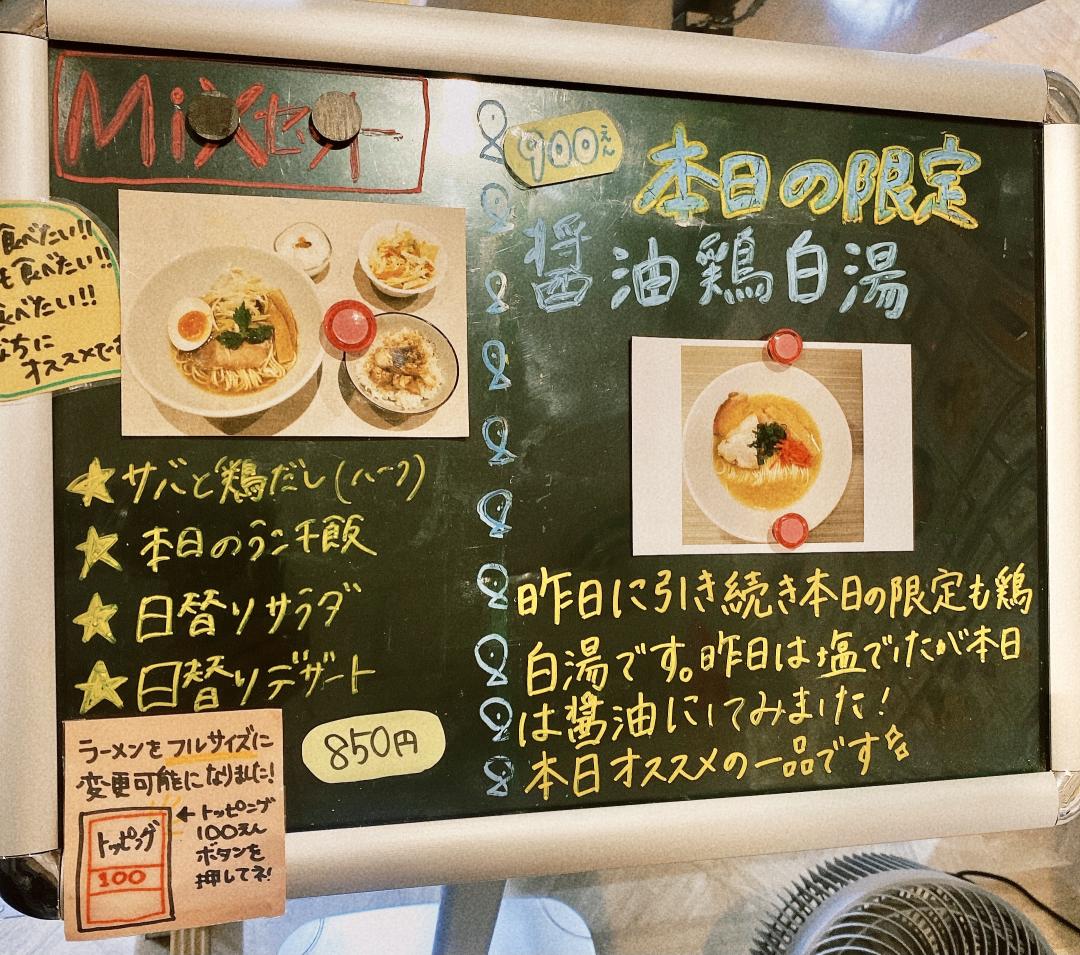 Mixセット
食べたい!!
も食べたい!!
食べたい!!
オススメです
★サバと鶏だし(ハーフ)
★本日のランチ飯
★日替りサラダ
★日替りデザート
850円
ラーメンをフルサイズに
変更可能になりました!
トッピング
100
←トッピング
100えん
ボタンを
押してネ!
900えん
本日の限定
醤油鶏白湯
昨日に引き続き本日の限定も鶏
白湯です。昨日は塩でしたが本日
は醤油にしてみました!
本日オススメの一品です